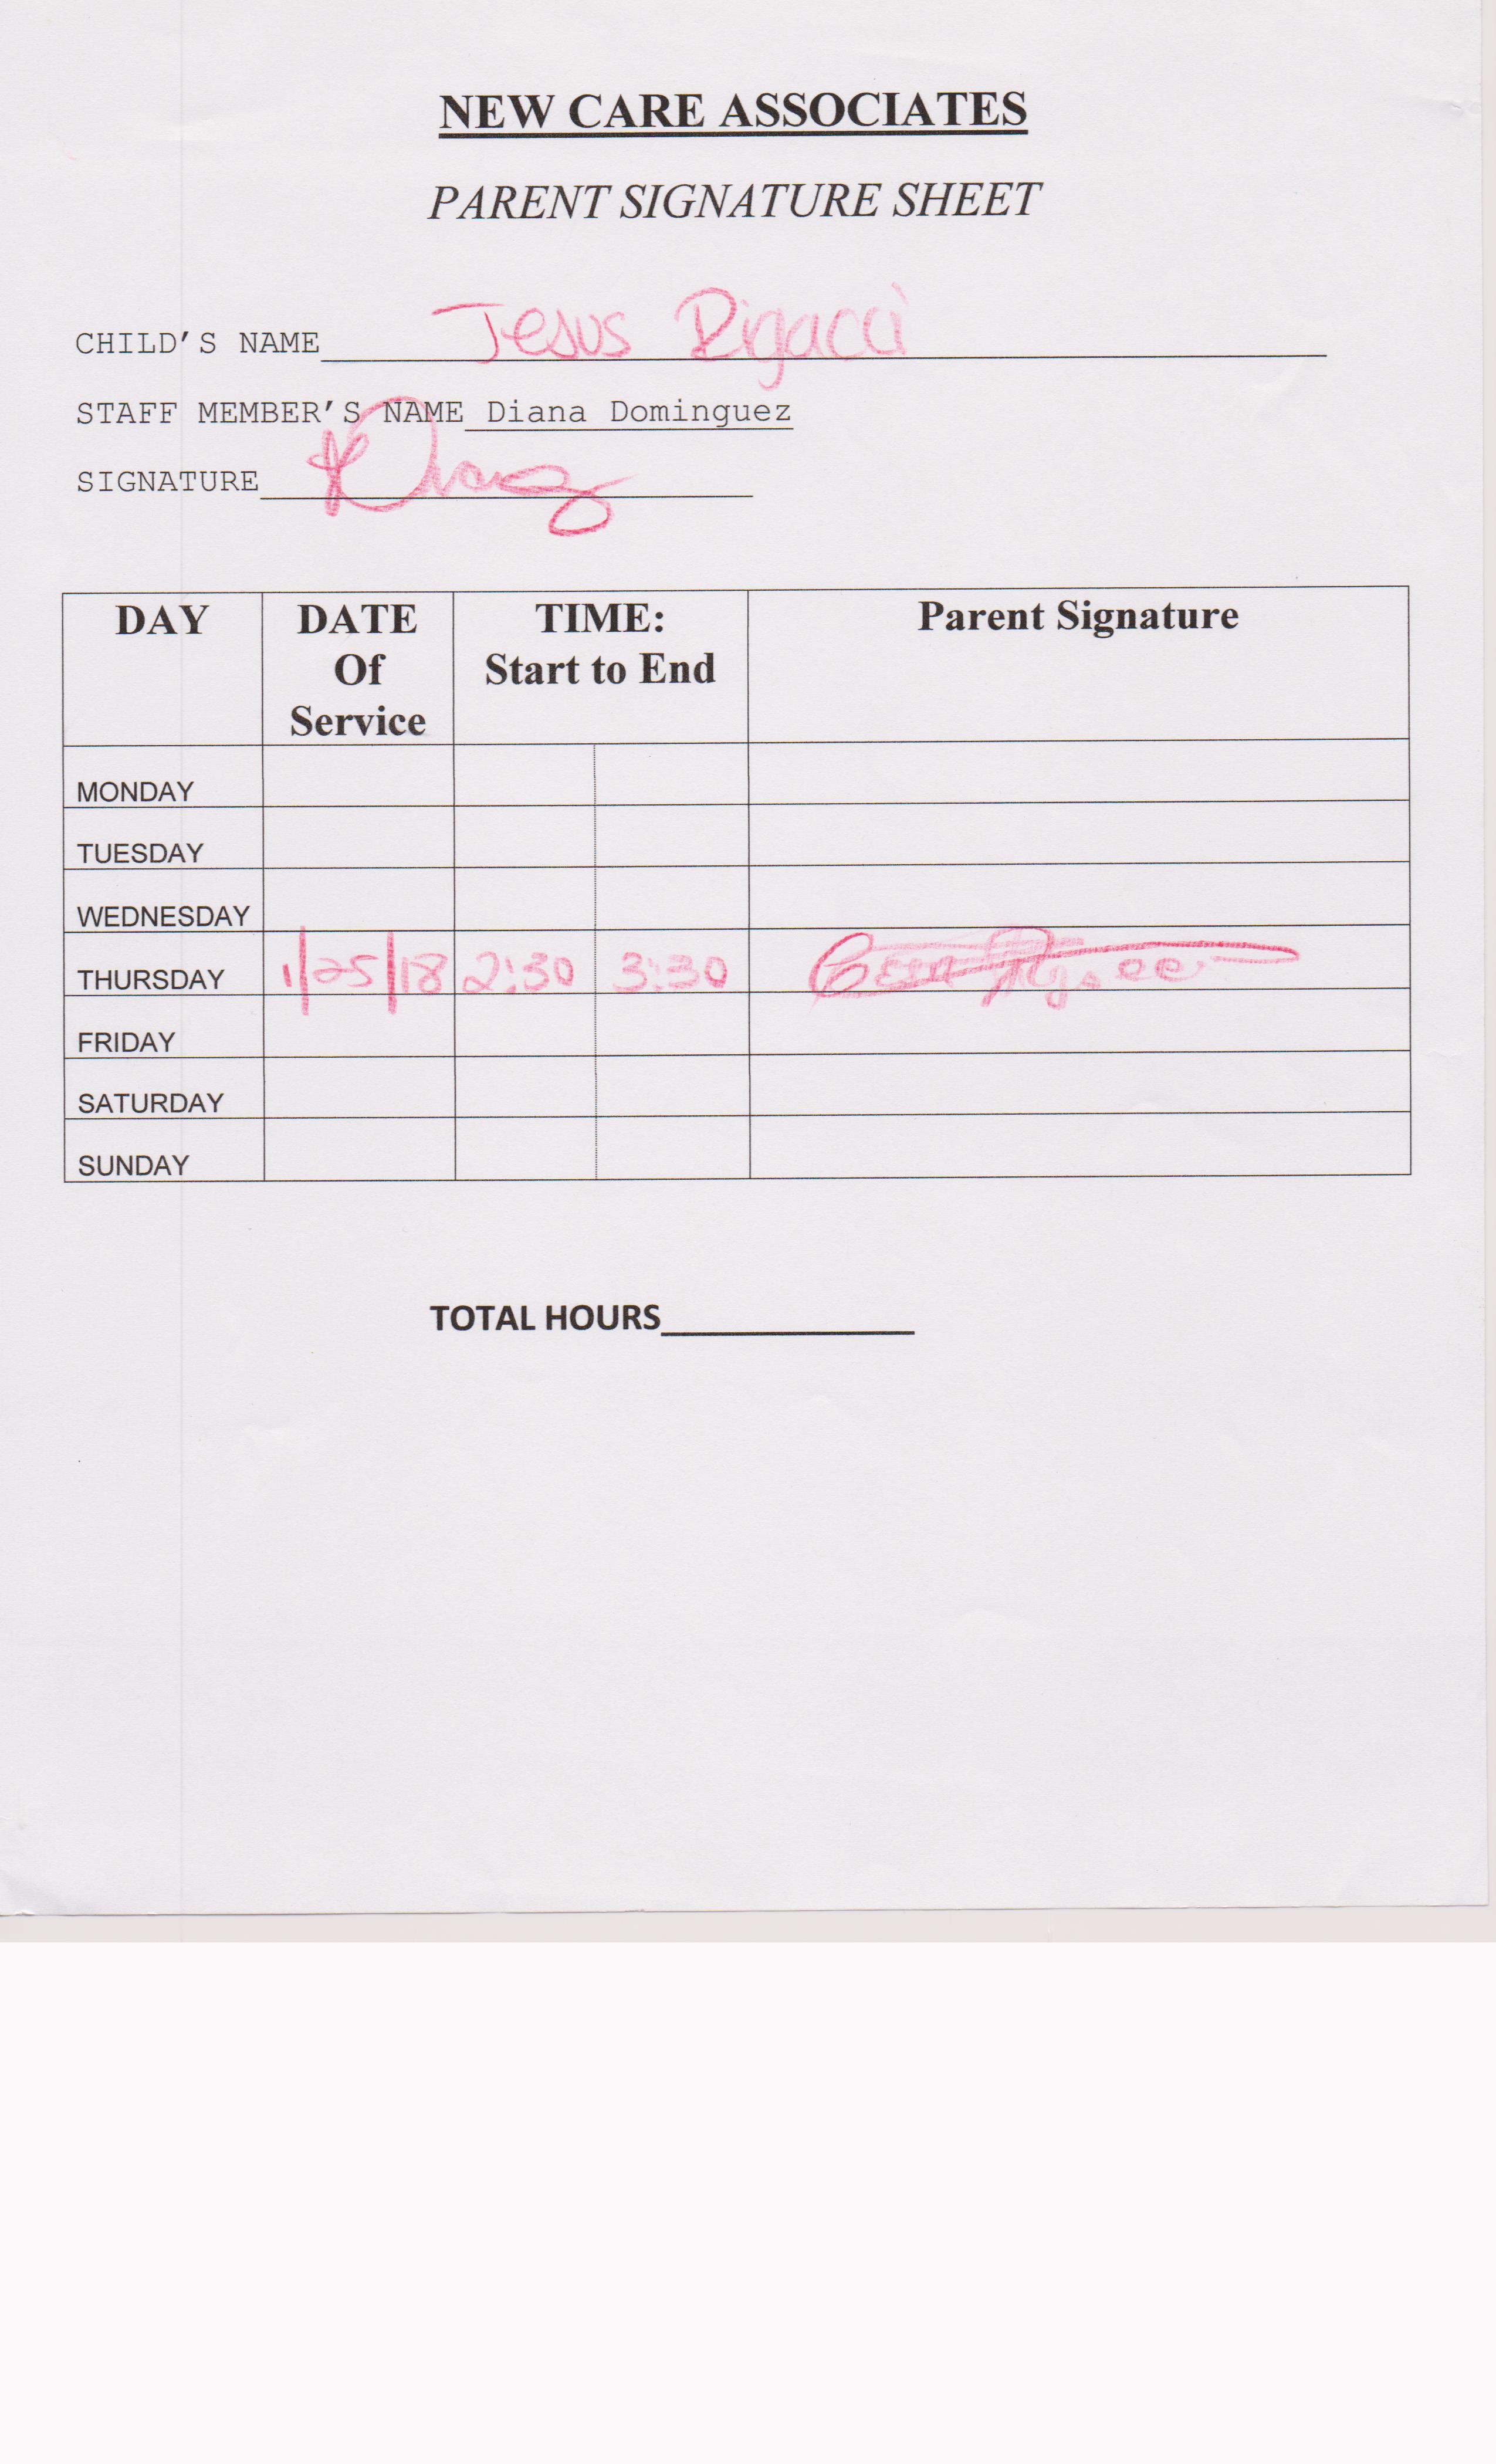 NEW CARE ASSOCIATES
PARENT SIGNATURE SHEET
CHILD'S NAME Jesus Rigacci
STAFF MEMBER'S NAME Diana Dominguez
SIGNATURE
DAY DATE Of Service TIME: Start to End Parent Signature
MONDAY
TUESDAY
WEDNESDAY
THURSDAY 1/25/18 2:30 3:30
FRIDAY
SATURDAY
SUNDAY
TOTAL HOURS